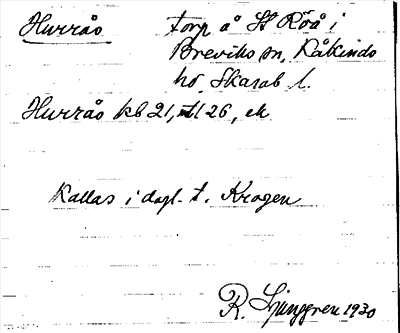 Hurrås torp å St Röå i
Breviks sn, Kåkinds
hd, Skarab. l.
Hurrås kb 21, 26, ek
Kallas i dagl. t. Krogen
R. Ljunggren 1930